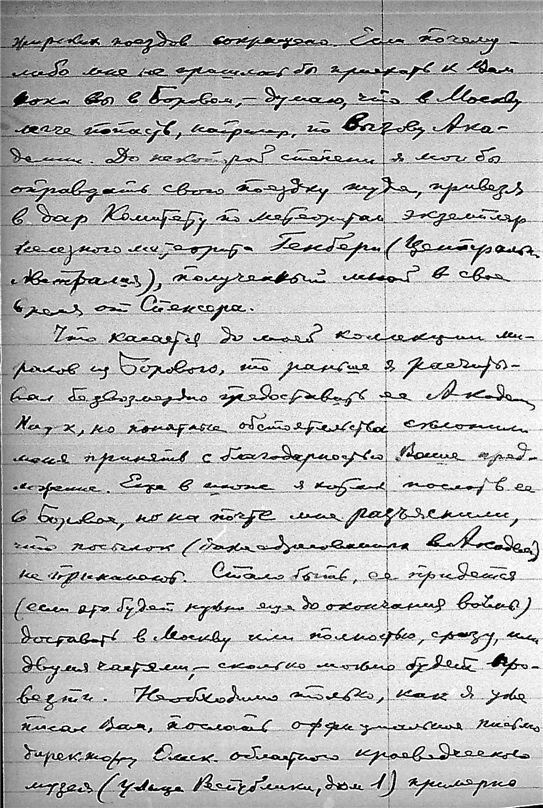 жирских поездов сокращено. Если почему-
либо мне не пришлось бы приехать к Вам
пока вы в Боровом, – думаю, что в Москву
легче попасть, например, по вызову Ака-
демии. До некоторой степени я мог бы
оправдать свою поездку туда, привезя
в дар Комитету по метеоритам экземпляр
железного метеорита Генбери (Центральн.
Австралия), полученный мной в свое
время от Спенсера.
Что касается до моей коллекции ми-
ралов из Борового, то раньше я расчиты-
вал безвозмездно предоставить ее Академ.
Наук, но понятные обстоятельства склонили
меня принять с благодарностью Ваше пред-
ложение. Еще в июне я хотел послать ее
в Боровое, но на почте мне разъяснили,
что посылок (даже адресованных в Академию)
не принимают. Стало быть, ее придется
(если это будет нужно еще до окончания войны)
доставить в Москву или полностью, сразу, или
двумя частями, – сколько можно будет про-
везти. Необходимо только, как я уже
писал Вам, послать официальное письмо
директору Омск. областного краеведческого
музея (улица Республики, дом 1) примерно